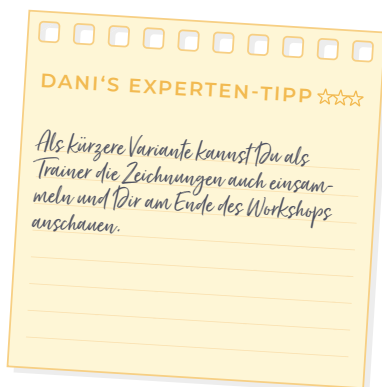 DANI‘S EXPERTEN-TIPP
Als kürzere Variante kannst Du als
Trainer die Zeichnungen auch einsam-
meln und Dir am Ende des Workshops
anschauen.